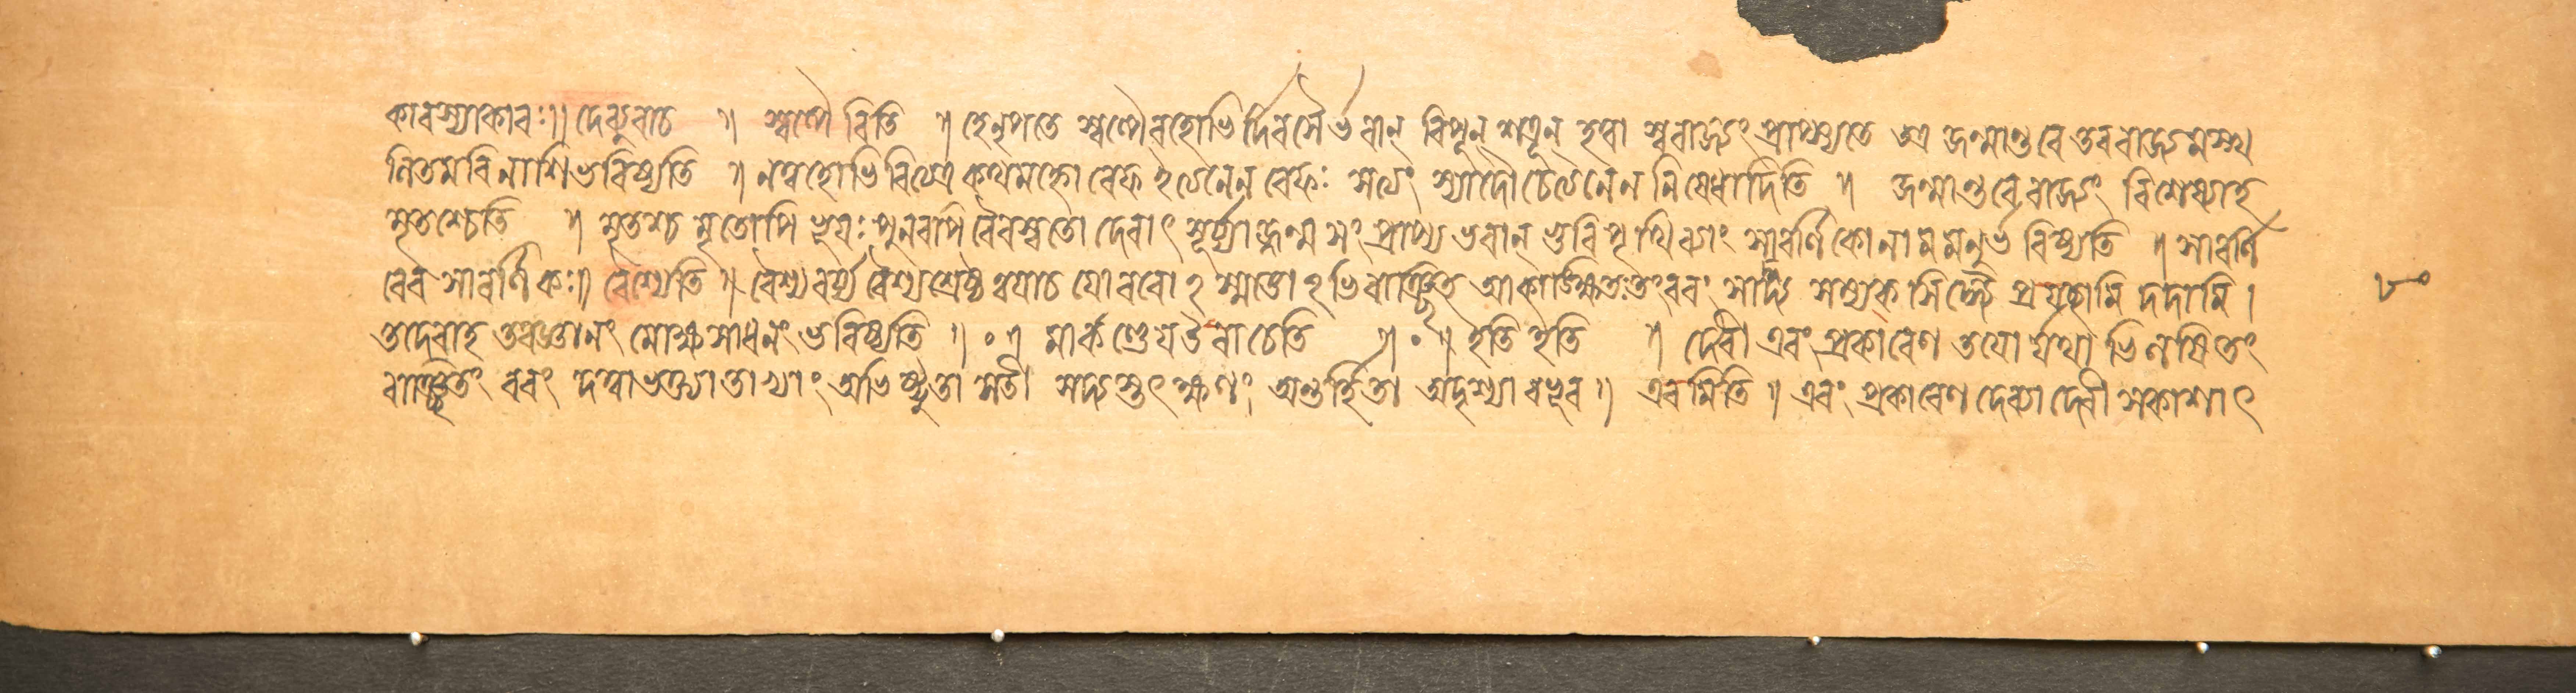 কাবস্যাকাবঃ॥ দেব্যুবাচ ॥ স্বল্পৈ বিতি ॥ হে নৃপতে স্বল্পৈবহোভি র্দিবসৈ র্ভবান্ বিপূন্ শত্রূন্ হত্বা স্ববাজ্যং প্রাপ্স্যতে অত্র জন্মান্তবে তব বাজ্যমস্খ
লিতমবিনাশি ভবিষ্যতি ॥ নন্বহোভি বিত্যত্র কথমহ্নো বেফ নেন বেফঃ সত্যং স্যাদৌ নেন নিষেধাদিতি ॥ জন্মান্তবে বাজ্যং বিশেষ্যাহ
মৃতশ্চেতি ॥ মৃতশ্চ মৃতোপি ভূয়ঃ পুনবাপি বৈবস্বতো দেবাৎ সূর্য্যাজ্জন্ম সং প্রাপ্য ভবান্ ভুবি পৃথিব্যাং সাবর্ণিকো নাম মনুর্ভ বিষ্যতি ॥ সাবর্ণি
বেব সাবর্ণিকঃ॥ বৈশ্যেতি ॥ বৈশ্যবর্য্য বৈশ্যশ্রেষ্ঠ ত্বয়াচ যো ববো ঽস্মত্তো ঽভিবাঞ্ছিত আকাঙ্ক্ষিতঃ তং ববং সংসিদ্ধ্যৈ সম্যক্ সিদ্ধ্যৈ প্রযচ্ছামি দদামি । ৮০
তদেবাহ তবজ্ঞানং মোক্ষসাধনং ভবিষ্যতি ॥ ০ ॥ মার্কণ্ডেয় উবাচেতি ॥ ০ ॥ ইতি ইতি ॥ দেবী এবং প্রকাবেণ তয়ো র্যথা ভিলষিতং
বাঞ্ছিতং ববং দত্বা ভক্ত্যা তাভ্যাং অভিষ্টুতা সতী সদ্যস্তৎক্ষণং অন্তর্হিতা অদৃশ্যা বভূব ॥ এবমিতি ॥ এবং প্রকাবেণ দেব্যা দেবী সকাশাৎ